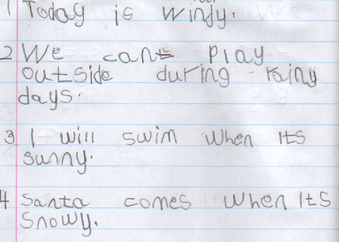 1 Today is windy.
2 We cant play
outside during rainy
days.
3 I will swim when its
sunny.
4 Santa comes when its
snowy.